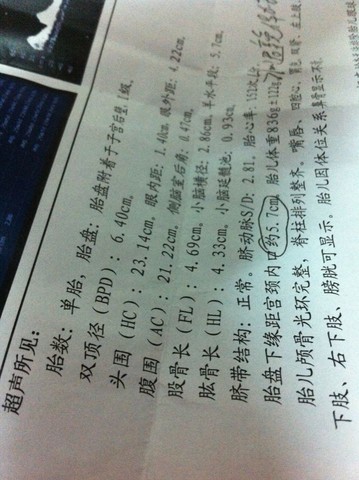 超声所见：
胎数：单胎，胎盘：胎盘附着于子宫后壁，1级。
双顶径（BPD）：6.40cm，眼内距：1.40cm，眼外距：4.22cm，
头围（HC）：23.14cm，侧脑室后角：0.47cm，
腹围（AC）：21.22cm，
股骨长（FL）：4.69cm，小脑横径：2.86cm，羊水平段：5.7cm，
肱骨长（HL）：4.33cm，小脑延髓池：0.93cm，
脐带结构：正常。脐动脉S/D：2.81，胎心率：152
胎盘下缘距宫颈内口约5.7cm，胎儿体重836g±122g
胎儿颅骨光环完整，脊柱排列整齐。嘴唇、四腔心、胃泡、双肾、左上肢、
下肢、右下肢、膀胱可显示。胎儿因体位关系鼻骨显示不